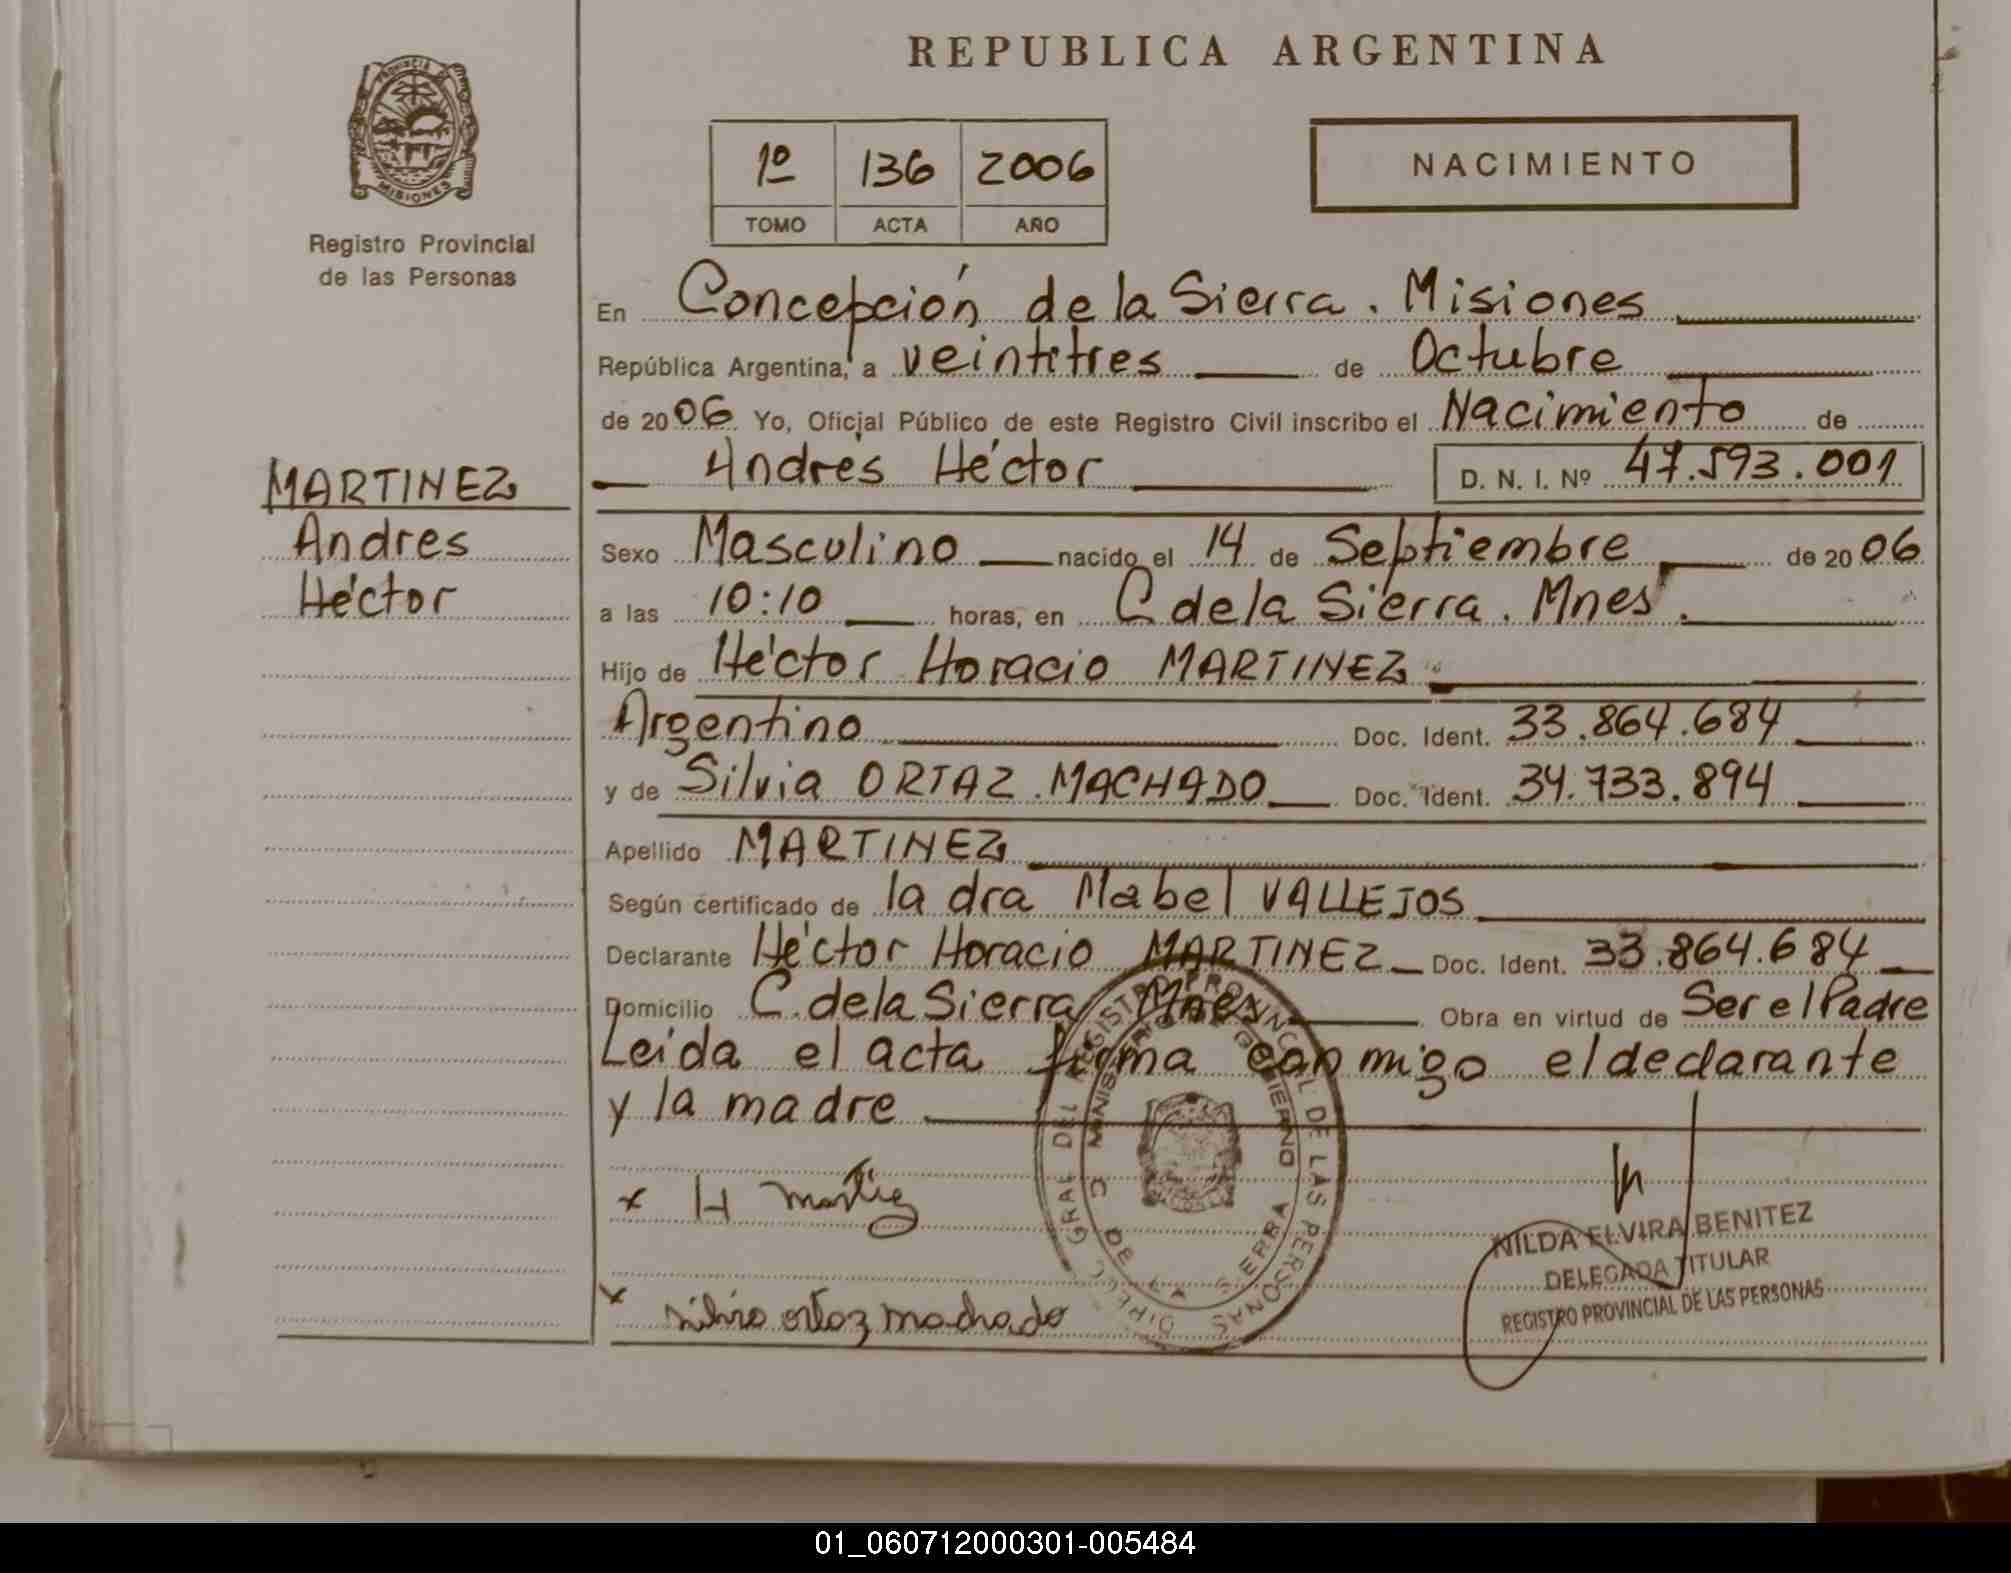 REPUBLICA ARGENTINA
PROVINCIA DE
MISIONES
Registro Provincial
de las Personas
1º 136 2006
TOMO ACTA AÑO
NACIMIENTO
En Concepción de la Sierra. Misiones
República Argentina, a veintitres de Octubre
de 2006 Yo, Oficial Público de este Registro Civil inscribo el Nacimiento de
Andrés Héctor D. N. I. Nº 47.593.001
MARTINEZ
Andres
Héctor
Sexo Masculino nacido el 14 de Septiembre de 2006
a las 10:10 horas, en C de la Sierra. Mnes.
Hijo de Héctor Horacio MARTINEZ
Argentino Doc. Ident. 33.864.684
y de Silvia ORTAZ MACHADO Doc. Ident. 34.733.894
Apellido MARTINEZ
Según certificado de la dra Mabel VALLEJOS
Declarante Héctor Horacio MARTINEZ Doc. Ident. 33.864.684
Domicilio C. de la Sierra Mnes Obra en virtud de Ser el Padre
Leída el acta firma conmigo el declarante
y la madre
x H Martiez
x silvia ortaz machado
DIRECC GRAL DEL REGISTRO PROVINCIAL DE LAS PERSONAS
MINISTERIO DE GOBIERNO
C DE LA SIERRA
NILDA ELVIRA BENITEZ
DELEGADA TITULAR
REGISTRO PROVINCIAL DE LAS PERSONAS
01_060712000301-005484